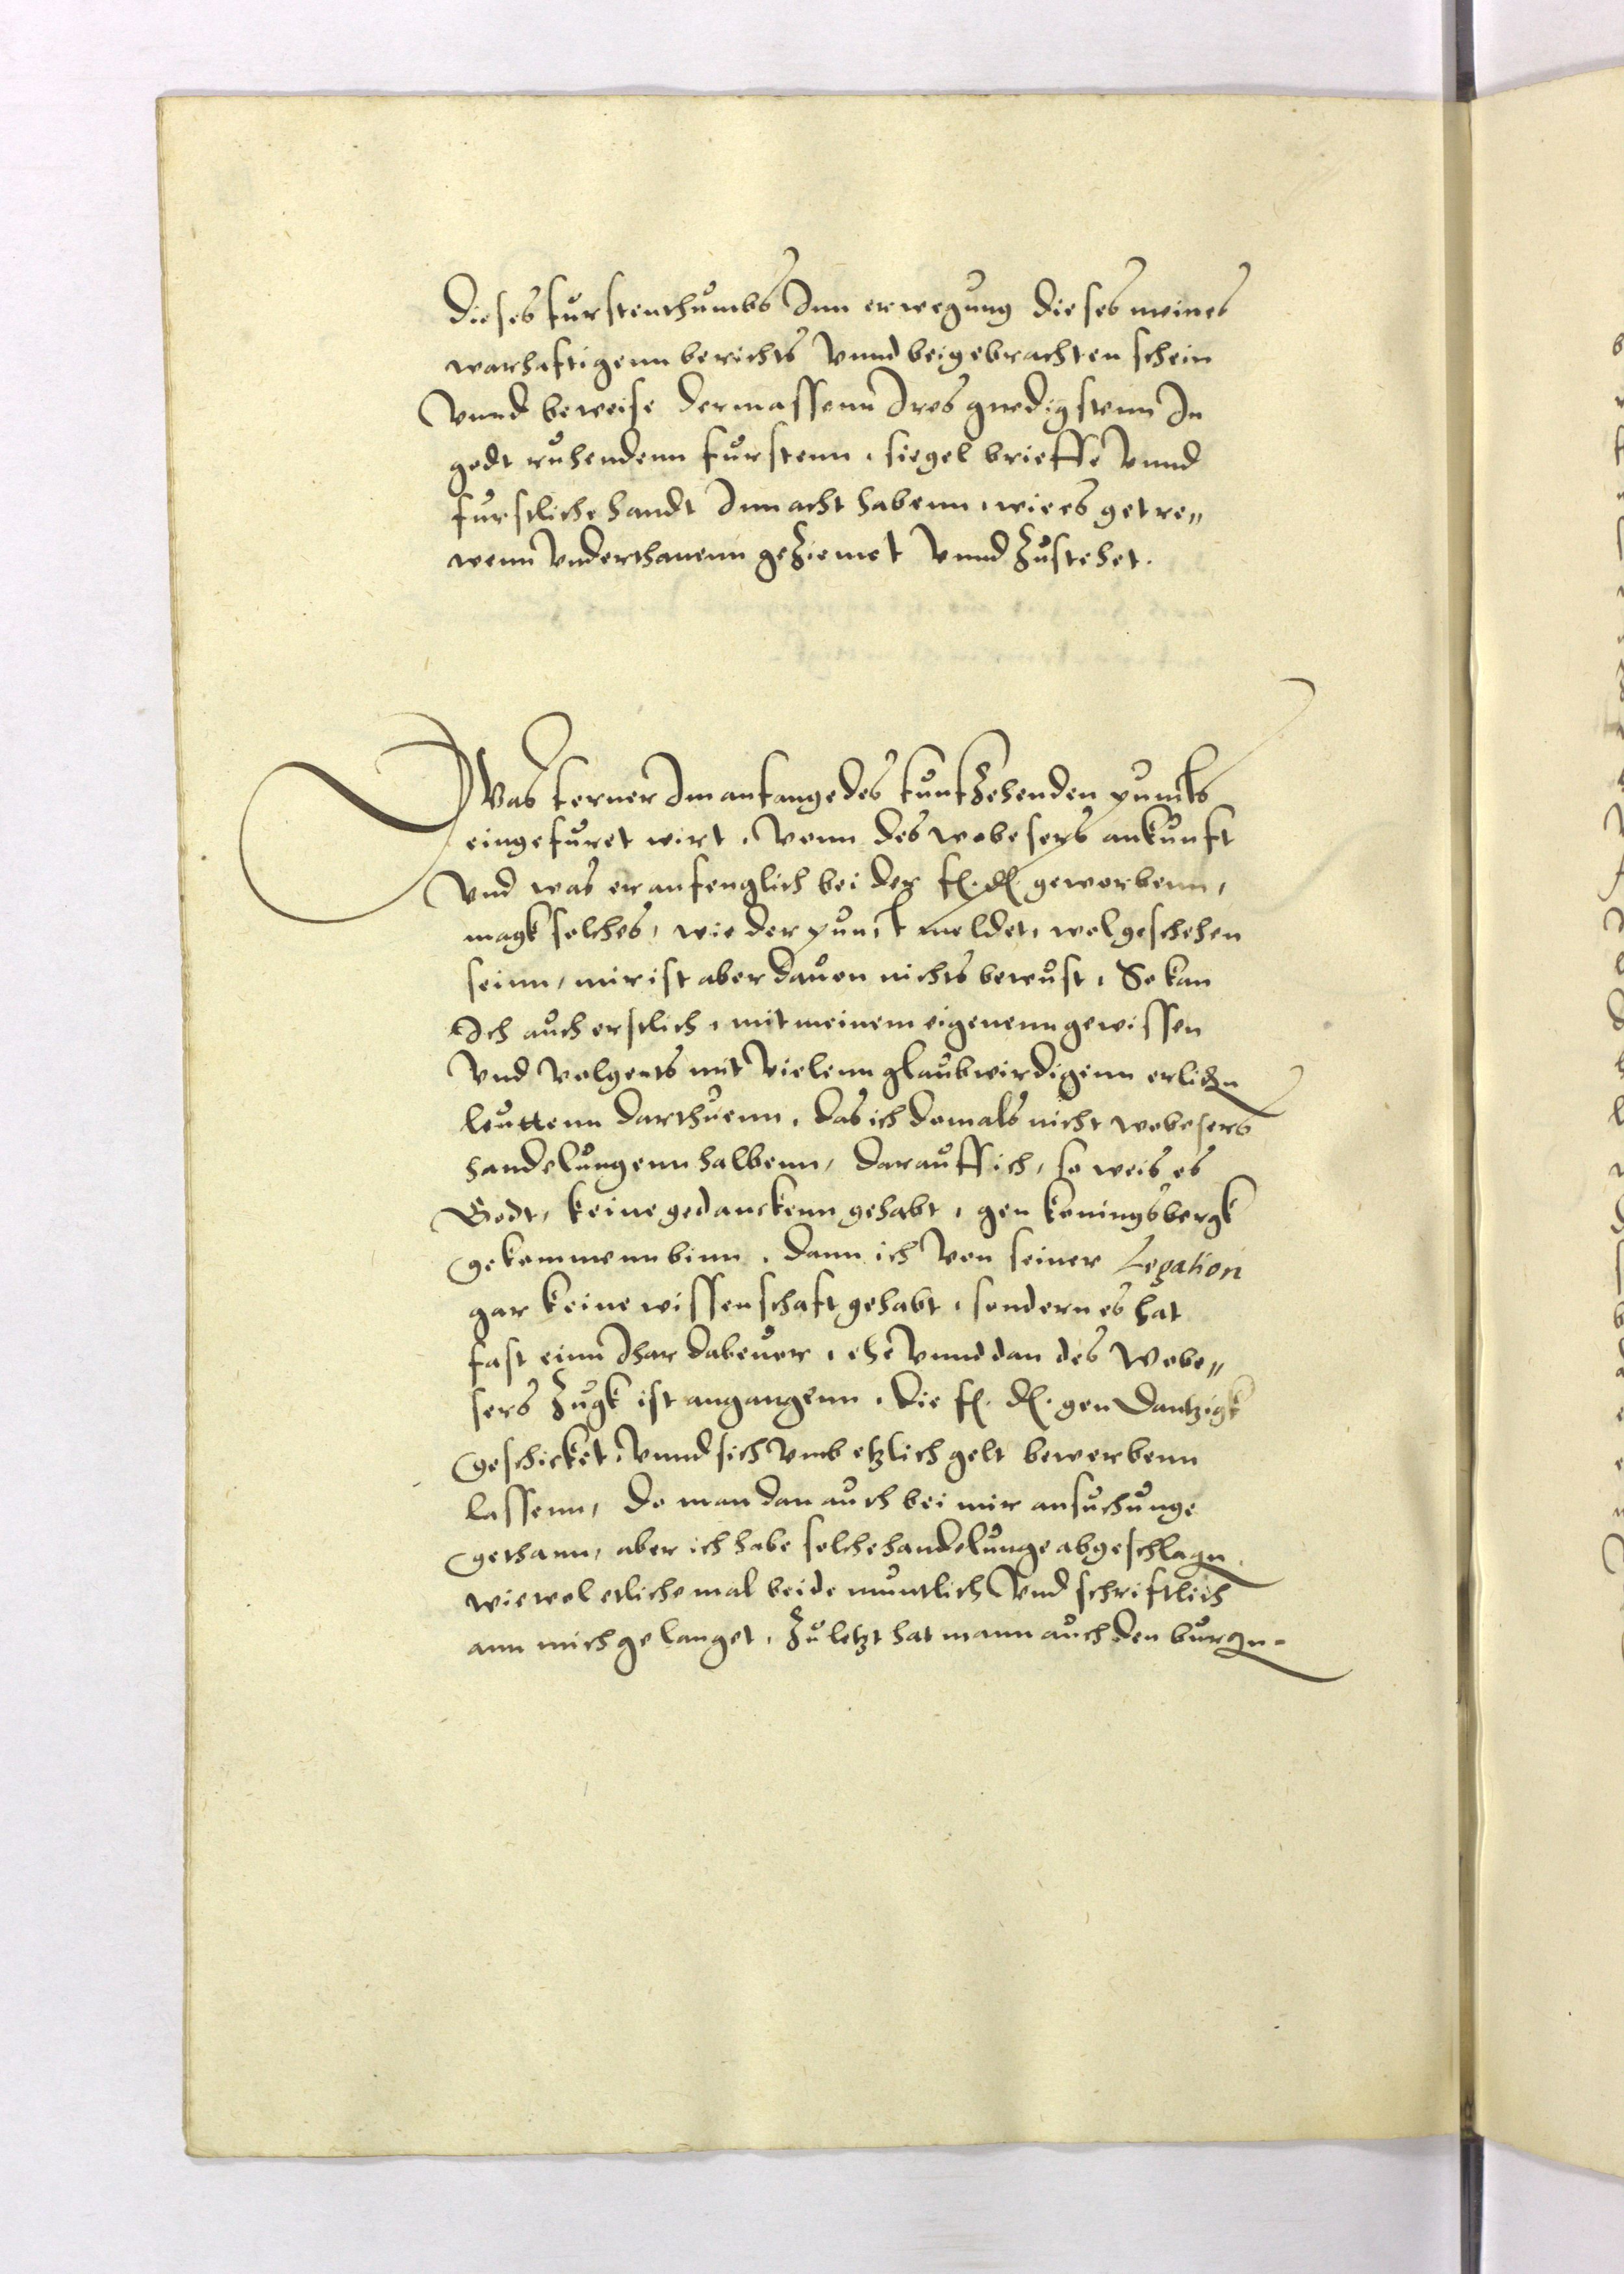 dieses furstenthumbs Inn erwegung dieses meines
warhaftigenn berichts vnnd beigebrachten schein
vnnd beweise dermassenn Ires gnedigstenn In
godt ruhendenn furstenn, siegel brieffe vnnd
furstliche handt Inn acht habenn, wie es getre„
wenn vnderthanenn geziemet vnnd zustehet.
Was ferner Im anfange des funfzehenden puncts
eingefuret wirt, vonn des wobesers ankunft
vnd was er anfenglich bei der f. d. geworbenn,
magk solches, wie der punct meldet, wol geschehen
seinn, mir ist aber dauon nichts bewust, So kan
Ich auch erstlich, mit meinem eigenenn gewissen
vnd volgents mit vielenn glaubwirdigenn erlichn
leuttenn darthuenn, das ich domals nicht wobesers
handelungenn halbenn, darauff ich, so weis es
Godt, keine gedanckenn gehabt, gen koningsbergk
gekommenn binn, dann ich von seiner Legation
gar keine wissenschaft gehabt, sondern es hat
fast einn Jhar dabeuor, ehe vnnd dan des Wobe„
sers zugk ist angangenn, die f. d. gen Dantzigk
geschicket, vnnd sich vmb etzlich gelt bewerbenn
lassenn, do man dan auch bei mir ansuchunge
gethann, aber ich habe solche handelunge abgeschlagn,
wiewol etliche mal beide muntlich vnd schriftlich
ann mich gelanget, zuletzt hat mann auch den burgn-